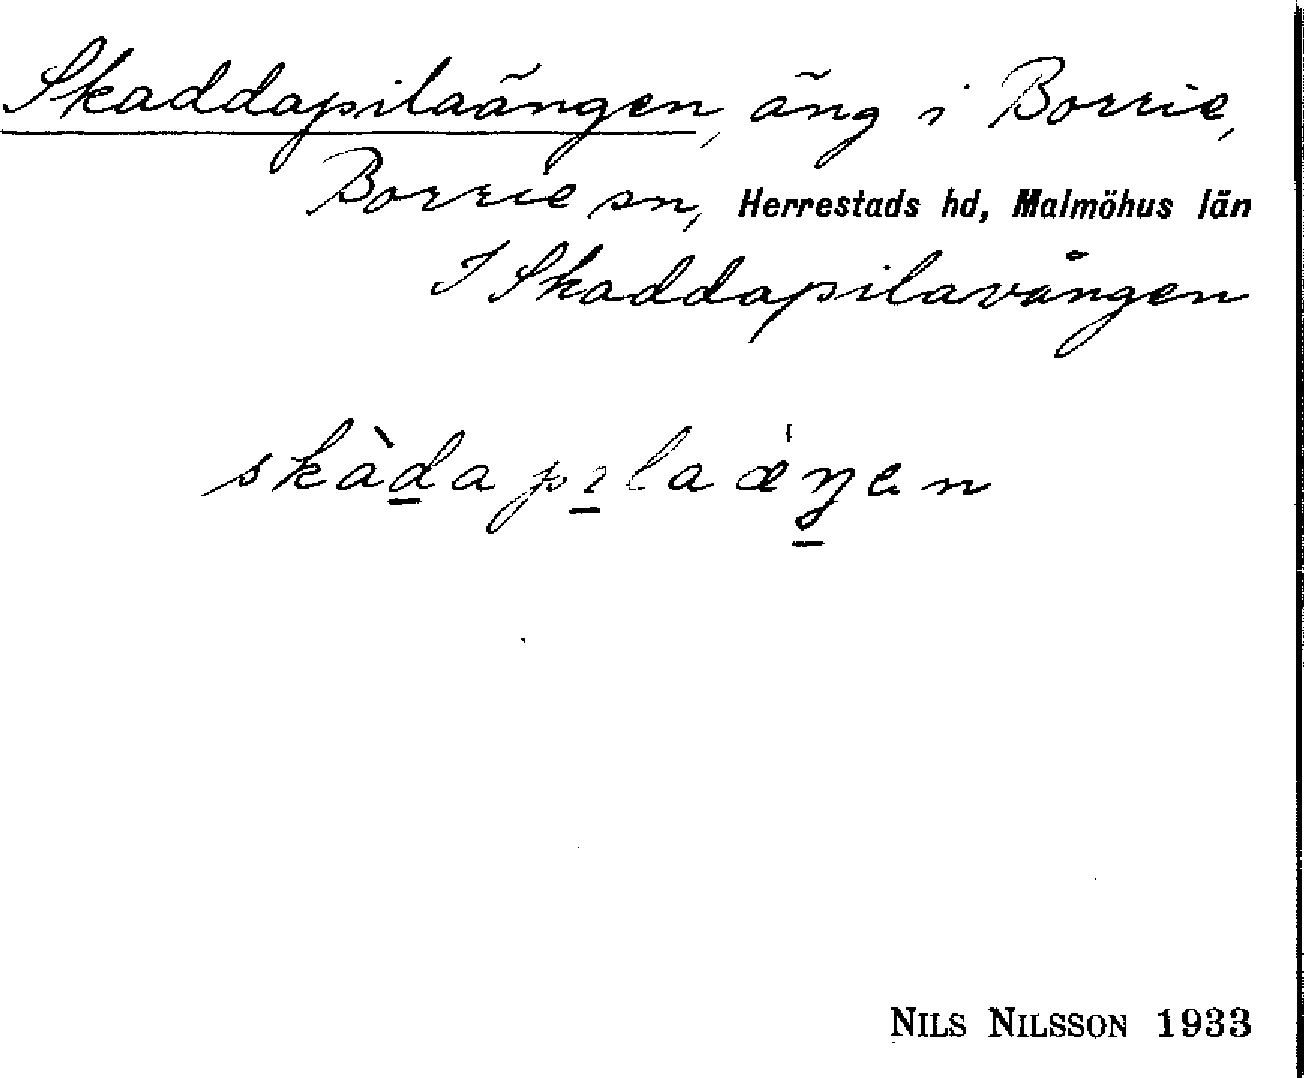 Skaddapilaängen, äng i Borrie,
Borrie sn, Herrestads hd, Malmöhus län
I Skaddapilavången
skàd̲apı̲laǽŋ̲en
NILS NILSSON 1933